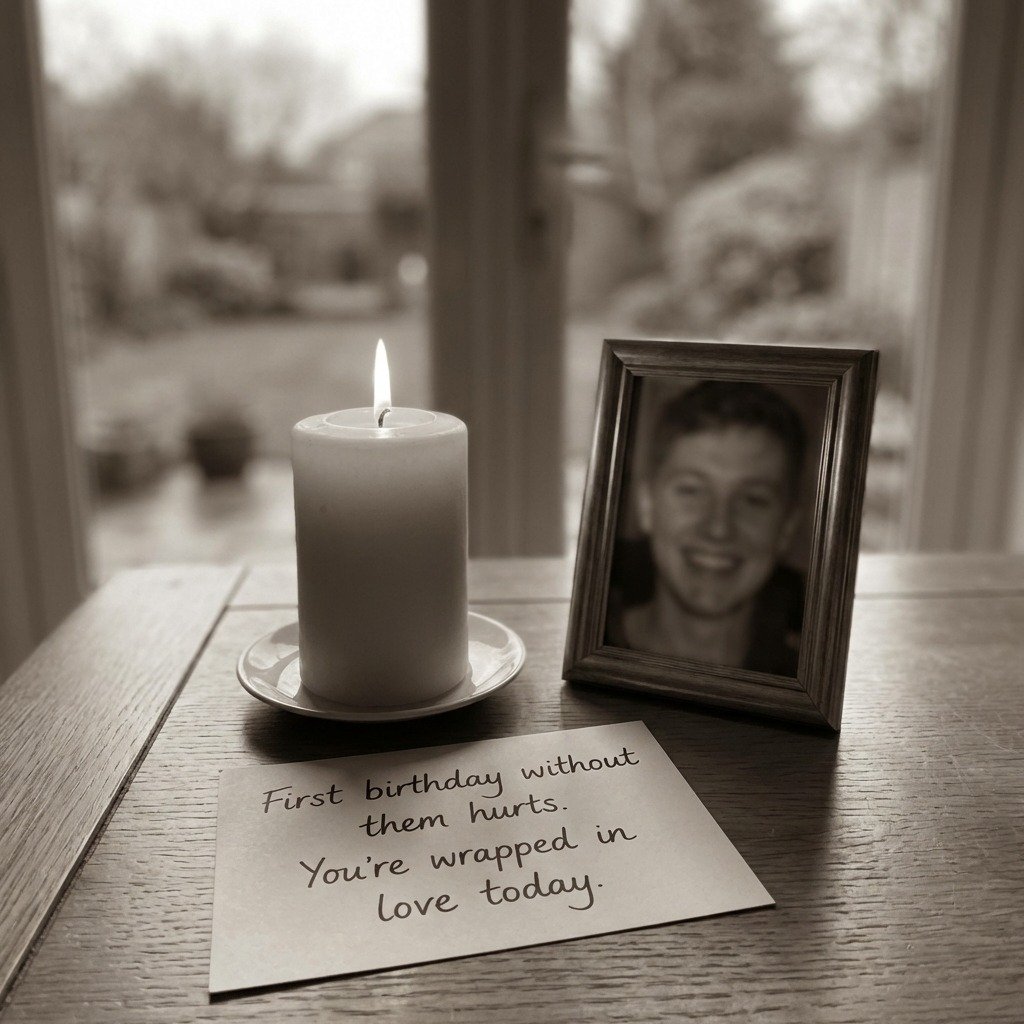 First birthday without
them hurts.
You're wrapped in
love today.